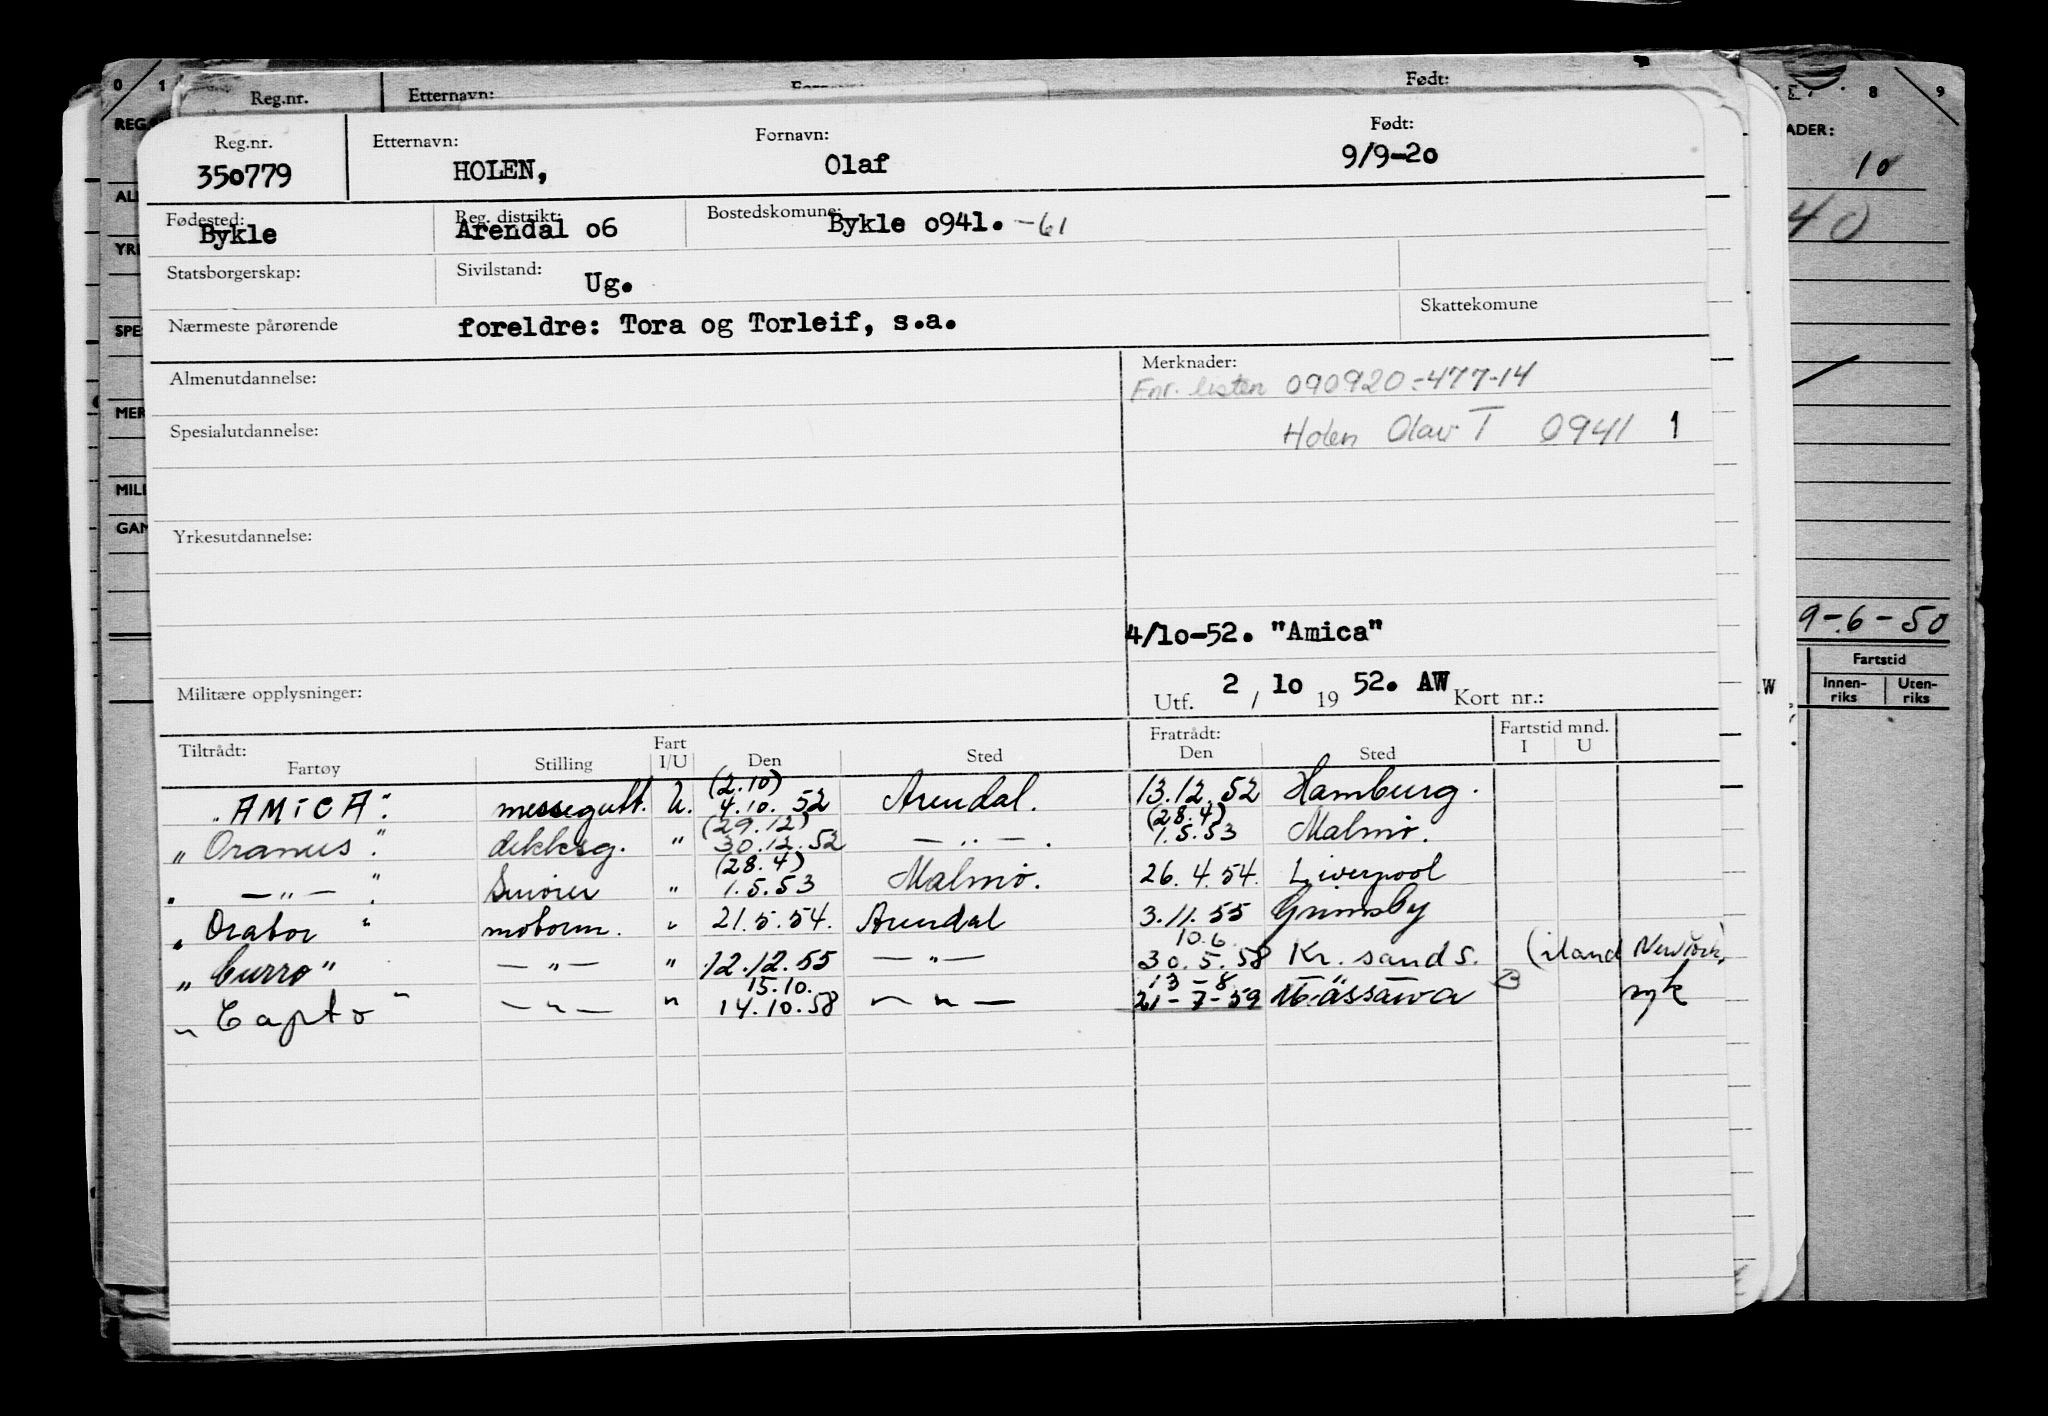 0 1 8 9
Reg.nr. Etternavn: Født:
REG. ADER:
10
40
Reg.nr. Etternavn: Fornavn: Født:
350779 HOLEN, Olaf 9/9-20
Fødested: Reg. distrikt: Bostedskomune:
Bykle Arendal o6 Bykle o941. -61
Statsborgerskap: Sivilstand: Ug.
Skattekomune
Nærmeste pårørende foreldre: Tora og Torleif, s.a.
Almenutdannelse: Merknader:
Fnr. listen 090920-477-14
Spesialutdannelse: Holen Olav T 0941 1
Yrkesutdannelse:
4/10-52. "Amica"
Militære opplysninger: Utf. 2 / 10 19 52. AW Kort nr.:
9-6-50
Fartstid
Innen-riks Uten-riks
Tiltrådt: Fart Fratrådt: Fartstid mnd.
Fartøy Stilling I/U Den Sted Den Sted I U
(2.10)
"AMICA". messegutt. U. 4.10. 52 Arendal. 13.12.52 Hamburg.
(29.12) (28.4)
"Oranus". dekksg. " 30.12.52 — " — . 1.5.53 Malmø.
(28.4)
" — " — ". Smører " 1.5.53 Malmø. 26.4.54. Liverpool
"Orator" motorm. " 21.5.54. Arendal 3.11.55 Grimsby
10.6.
"Curro" — " — " 12.12.55 — " — 30.5.58 Kr.sand S. (iland New York,
15.10. 13-8
"Capto" — " — " 14.10.58 — " — 21-7-59 Massawa syk